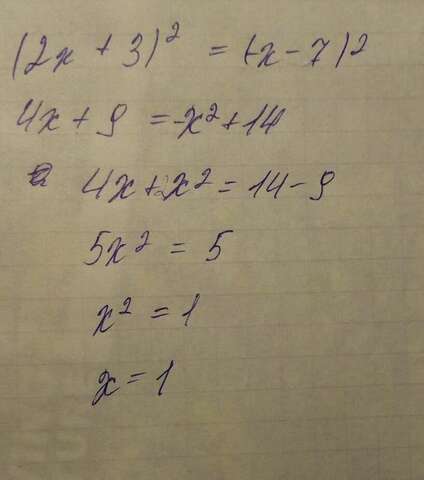 (2x + 3)² = (-x - 7)²
4x + 9 = -x² + 14
4x + x² = 14 - 9
5x² = 5
x² = 1
x = 1